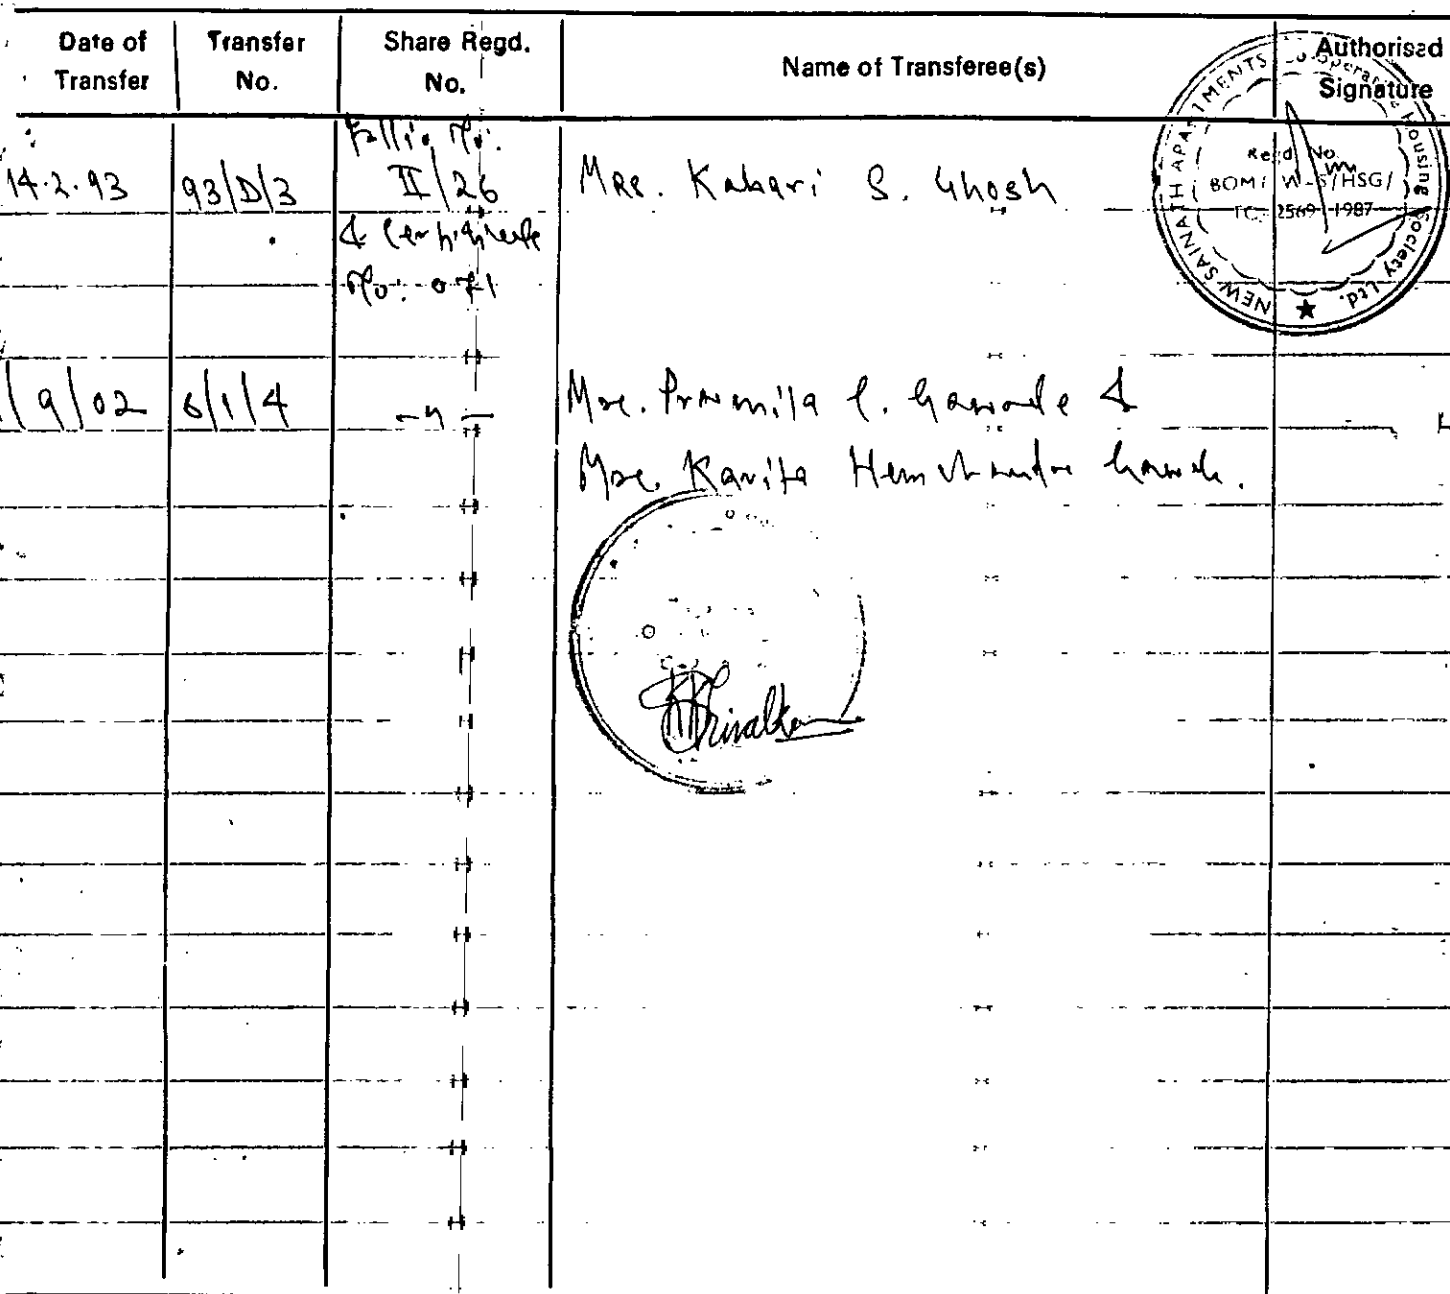 Date of Transfer
Transfer No.
Share Regd. No.
Name of Transferee(s)
Authorised Signature
14.2.93 93/D/3 Follio No. II/26 Mrs. Kabari S. Ghosh
& Certificate
No: 071
NEW SAINATH APARTMENTS Co-operative Housing Society Ltd.
Regd. No.
BOM/ W-S/HSG/
TC. 2569 1987
/9/02 6/1/4 -"- Mrs. Pramila C. Gawade &
Mrs. Kavita Hemchandra Gawade.